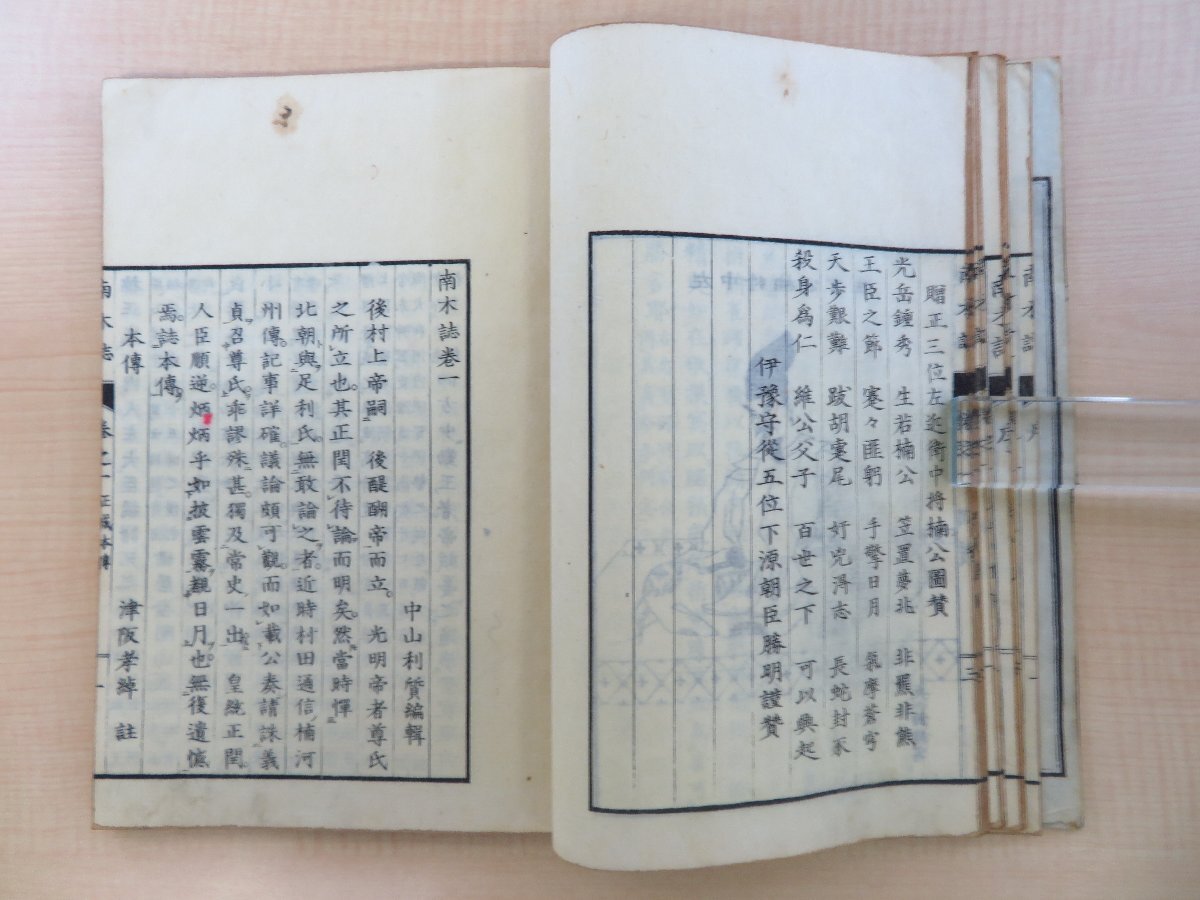 贈正三位左近衛中將楠公圖贊
光岳鍾秀 生若楠公 笠置夢兆 非羆非熊
王臣之節 蹇々匪躬 手擎日月 氣摩蒼穹
天步艱難 跋胡疐尾 好兇得志 長蛇封豕
殺身爲仁 維公父子 百世之下 可以興起
伊豫守從五位下源朝臣勝明謹贊
南木誌卷一
中山利質編輯
後村上帝嗣 後醍醐帝而立。 光明帝者尊氏
之所立也。其正閏不待論而明矣。然當時憚
北朝與足利氏。無敢論之者。近時村田通信楠河
州傳。記事詳確。議論頗可觀。而如載公奏請誅義
貞召尊氏。乖謬殊甚。獨及常史一出。 皇統正閏
人臣順逆。炳炳乎如披雲霧親日月也。無後遺憾
焉。誌本傳。
本傳 津阪孝綽 註
南木誌 卷之一 正成本傳 一
南木誌